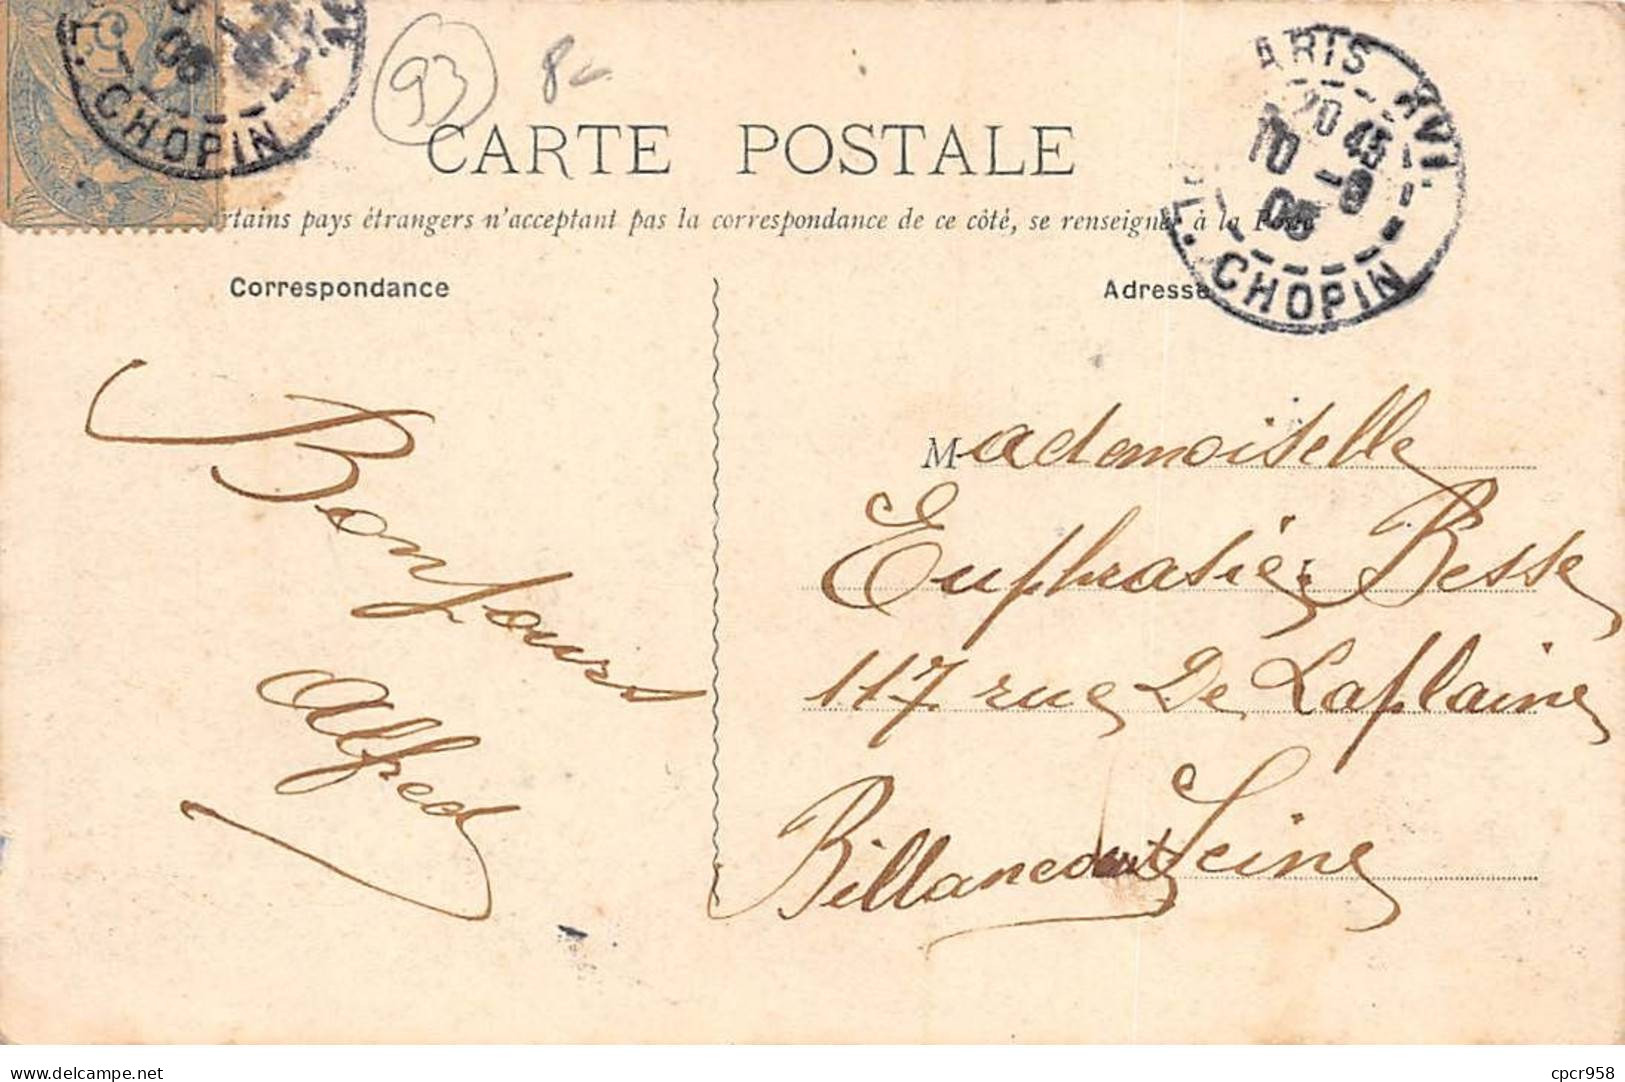 93
8-
CARTE POSTALE
rtains pays étrangers n'acceptant pas la correspondance de ce côté, se renseigner à la Poste
Correspondance
Adresse
ARIS XVI.
20 45
10 -8
06
CHOPIN
06
CHOPIN
Bonjours
Alfred
Mademoiselle
Euphrasie Besse
117 rue De Laplaine
Billancourt Seine
delcampe.net
cpcr958